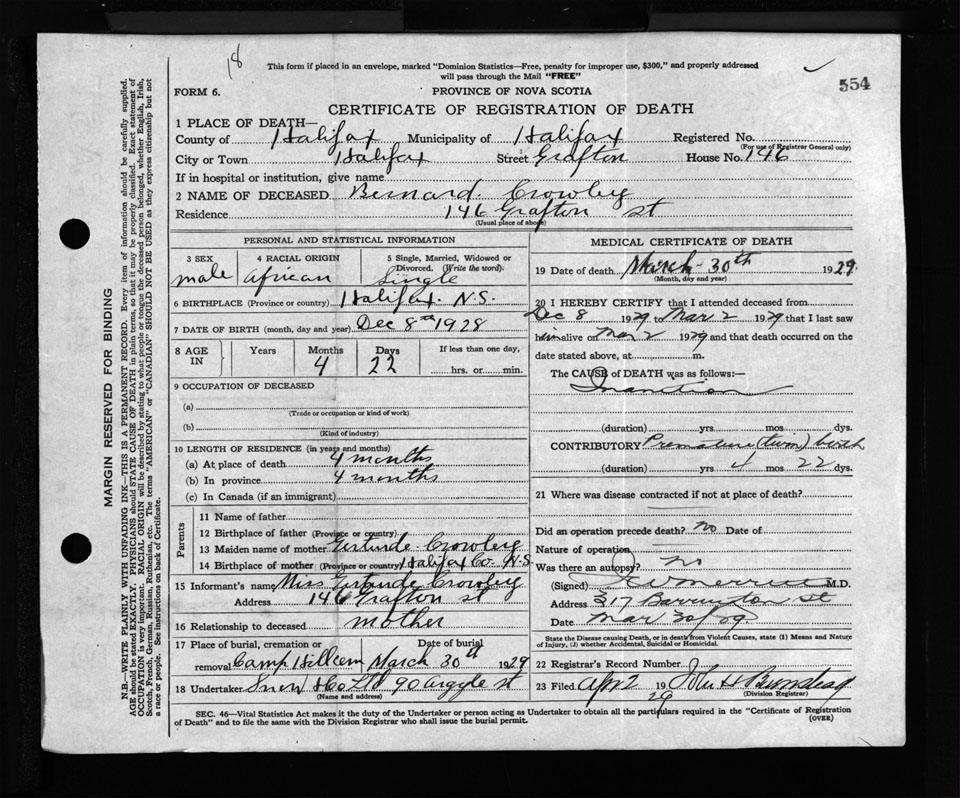 18
This form if placed in an envelope, marked "Dominion Statistics—Free, penalty for improper use, $300," and properly addressed
will pass through the Mail "FREE"
554
FORM 6.
PROVINCE OF NOVA SCOTIA
CERTIFICATE OF REGISTRATION OF DEATH
1 PLACE OF DEATH—
County of Halifax Municipality of Halifax Registered No.
(For use of Registrar General only)
City or Town Halifax Street Grafton House No. 146
If in hospital or institution, give name
2 NAME OF DECEASED Bernard Crowley
Residence 146 Grafton st
(Usual place of abode)
PERSONAL AND STATISTICAL INFORMATION
3 SEX 4 RACIAL ORIGIN 5 Single, Married, Widowed or
Divorced. (Write the word).
male African Single
6 BIRTHPLACE (Province or country) Halifax N.S.
7 DATE OF BIRTH (month, day and year) Dec 8th 1928
8 AGE IN Years Months Days If less than one day,
4 22 hrs. or min.
9 OCCUPATION OF DECEASED
(a)
(Trade or occupation or kind of work)
(b)
(Kind of industry)
10 LENGTH OF RESIDENCE (in years and months)
(a) At place of death 4 months
(b) In province 4 months
(c) In Canada (if an immigrant)
Parents
11 Name of father
12 Birthplace of father (Province or country)
13 Maiden name of mother Gertrude Crowley
14 Birthplace of mother (Province or country) Halifax Co. N.S.
15 Informant's name Miss Gertrude Crowley
Address 146 Grafton st
16 Relationship to deceased mother
17 Place of burial, cremation or Date of burial
removal Camp Hill cem March 30th 1929
18 Undertaker Snow & Co Ltd 90 argyle st
(Name and address)
MEDICAL CERTIFICATE OF DEATH
19 Date of death March 30th 1929
(Month, day and year)
20 I HEREBY CERTIFY that I attended deceased from
Dec 8 1929 to Mar 2 1929 that I last saw
him alive on Mar 2 1929 and that death occurred on the
date stated above, at m.
The CAUSE of DEATH was as follows:—
Inanition
(duration) yrs mos dys.
CONTRIBUTORY Premature (twin) birth
(duration) yrs 4 mos 22 dys.
21 Where was disease contracted if not at place of death?
Did an operation precede death? no Date of
Nature of operation
Was there an autopsy? no
(Signed) M.D.
Address 317 Barrington st
Date Mar 30/29
State the Disease causing Death, or in death from Violent Causes, state (1) Means and Nature
of Injury, (2) whether Accidental, Suicidal or Homicidal.
22 Registrar's Record Number
23 Filed Apr 2 1929 John H
(Division Registrar)
SEC. 46—Vital Statistics Act makes it the duty of the Undertaker or person acting as Undertaker to obtain all the particulars required in the "Certificate of Registration
of Death" and to file the same with the Division Registrar who shall issue the burial permit.
(OVER)
MARGIN RESERVED FOR BINDING
N.B.—WRITE PLAINLY WITH UNFADING INK—THIS IS A PERMANENT RECORD. Every item of information should be carefully supplied.
AGE should be stated EXACTLY. PHYSICIANS should STATE CAUSE OF DEATH in plain terms, so that it may be properly classified. Exact statement of
OCCUPATION is very important. RACIAL ORIGIN will be described by stating to what people or tongue the deceased person belonged, whether English, Irish,
Scotch, French, German, Russian, Ruthenian, etc. The terms "AMERICAN" or "CANADIAN" SHOULD NOT BE USED as they express citizenship but not
a race or people. See instructions on back of Certificate.